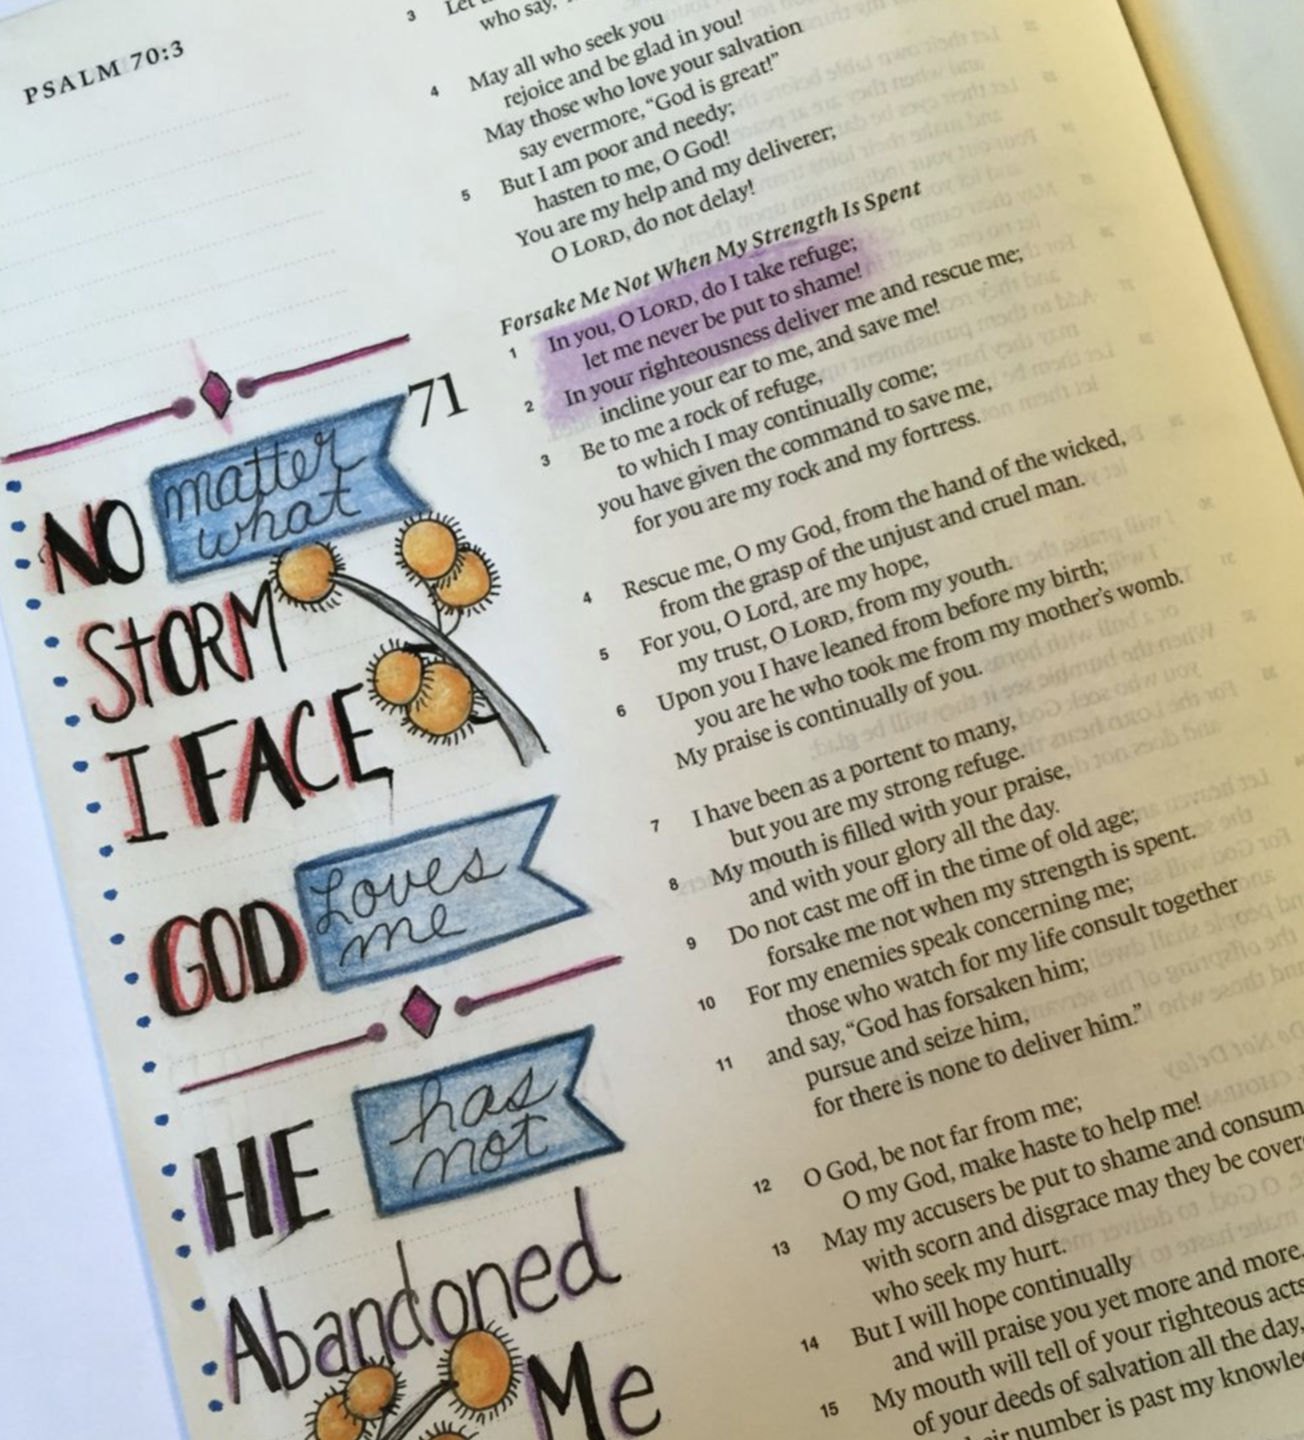 PSALM 70:3
3 Let
who say,
4 May all who seek you
rejoice and be glad in you!
May those who love your salvation
say evermore, “God is great!”
5 But I am poor and needy;
hasten to me, O God!
You are my help and my deliverer;
O LORD, do not delay!
Forsake Me Not When My Strength Is Spent
71
1 In you, O LORD, do I take refuge;
let me never be put to shame!
2 In your righteousness deliver me and rescue me;
incline your ear to me, and save me!
3 Be to me a rock of refuge,
to which I may continually come;
you have given the command to save me,
for you are my rock and my fortress.
4 Rescue me, O my God, from the hand of the wicked,
from the grasp of the unjust and cruel man.
5 For you, O Lord, are my hope,
my trust, O LORD, from my youth.
6 Upon you I have leaned from before my birth;
you are he who took me from my mother’s womb.
My praise is continually of you.
7 I have been as a portent to many,
but you are my strong refuge.
8 My mouth is filled with your praise,
and with your glory all the day.
9 Do not cast me off in the time of old age;
forsake me not when my strength is spent.
10 For my enemies speak concerning me;
those who watch for my life consult together
11 and say, “God has forsaken him;
pursue and seize him,
for there is none to deliver him.”
12 O God, be not far from me;
O my God, make haste to help me!
13 May my accusers be put to shame and consum
with scorn and disgrace may they be cover
who seek my hurt.
14 But I will hope continually
and will praise you yet more and more.
15 My mouth will tell of your righteous acts
of your deeds of salvation all the day,
number is past my knowle
NO matter
what
STORM
I FACE
GOD Loves
me
HE has
not
Abandoned
Me